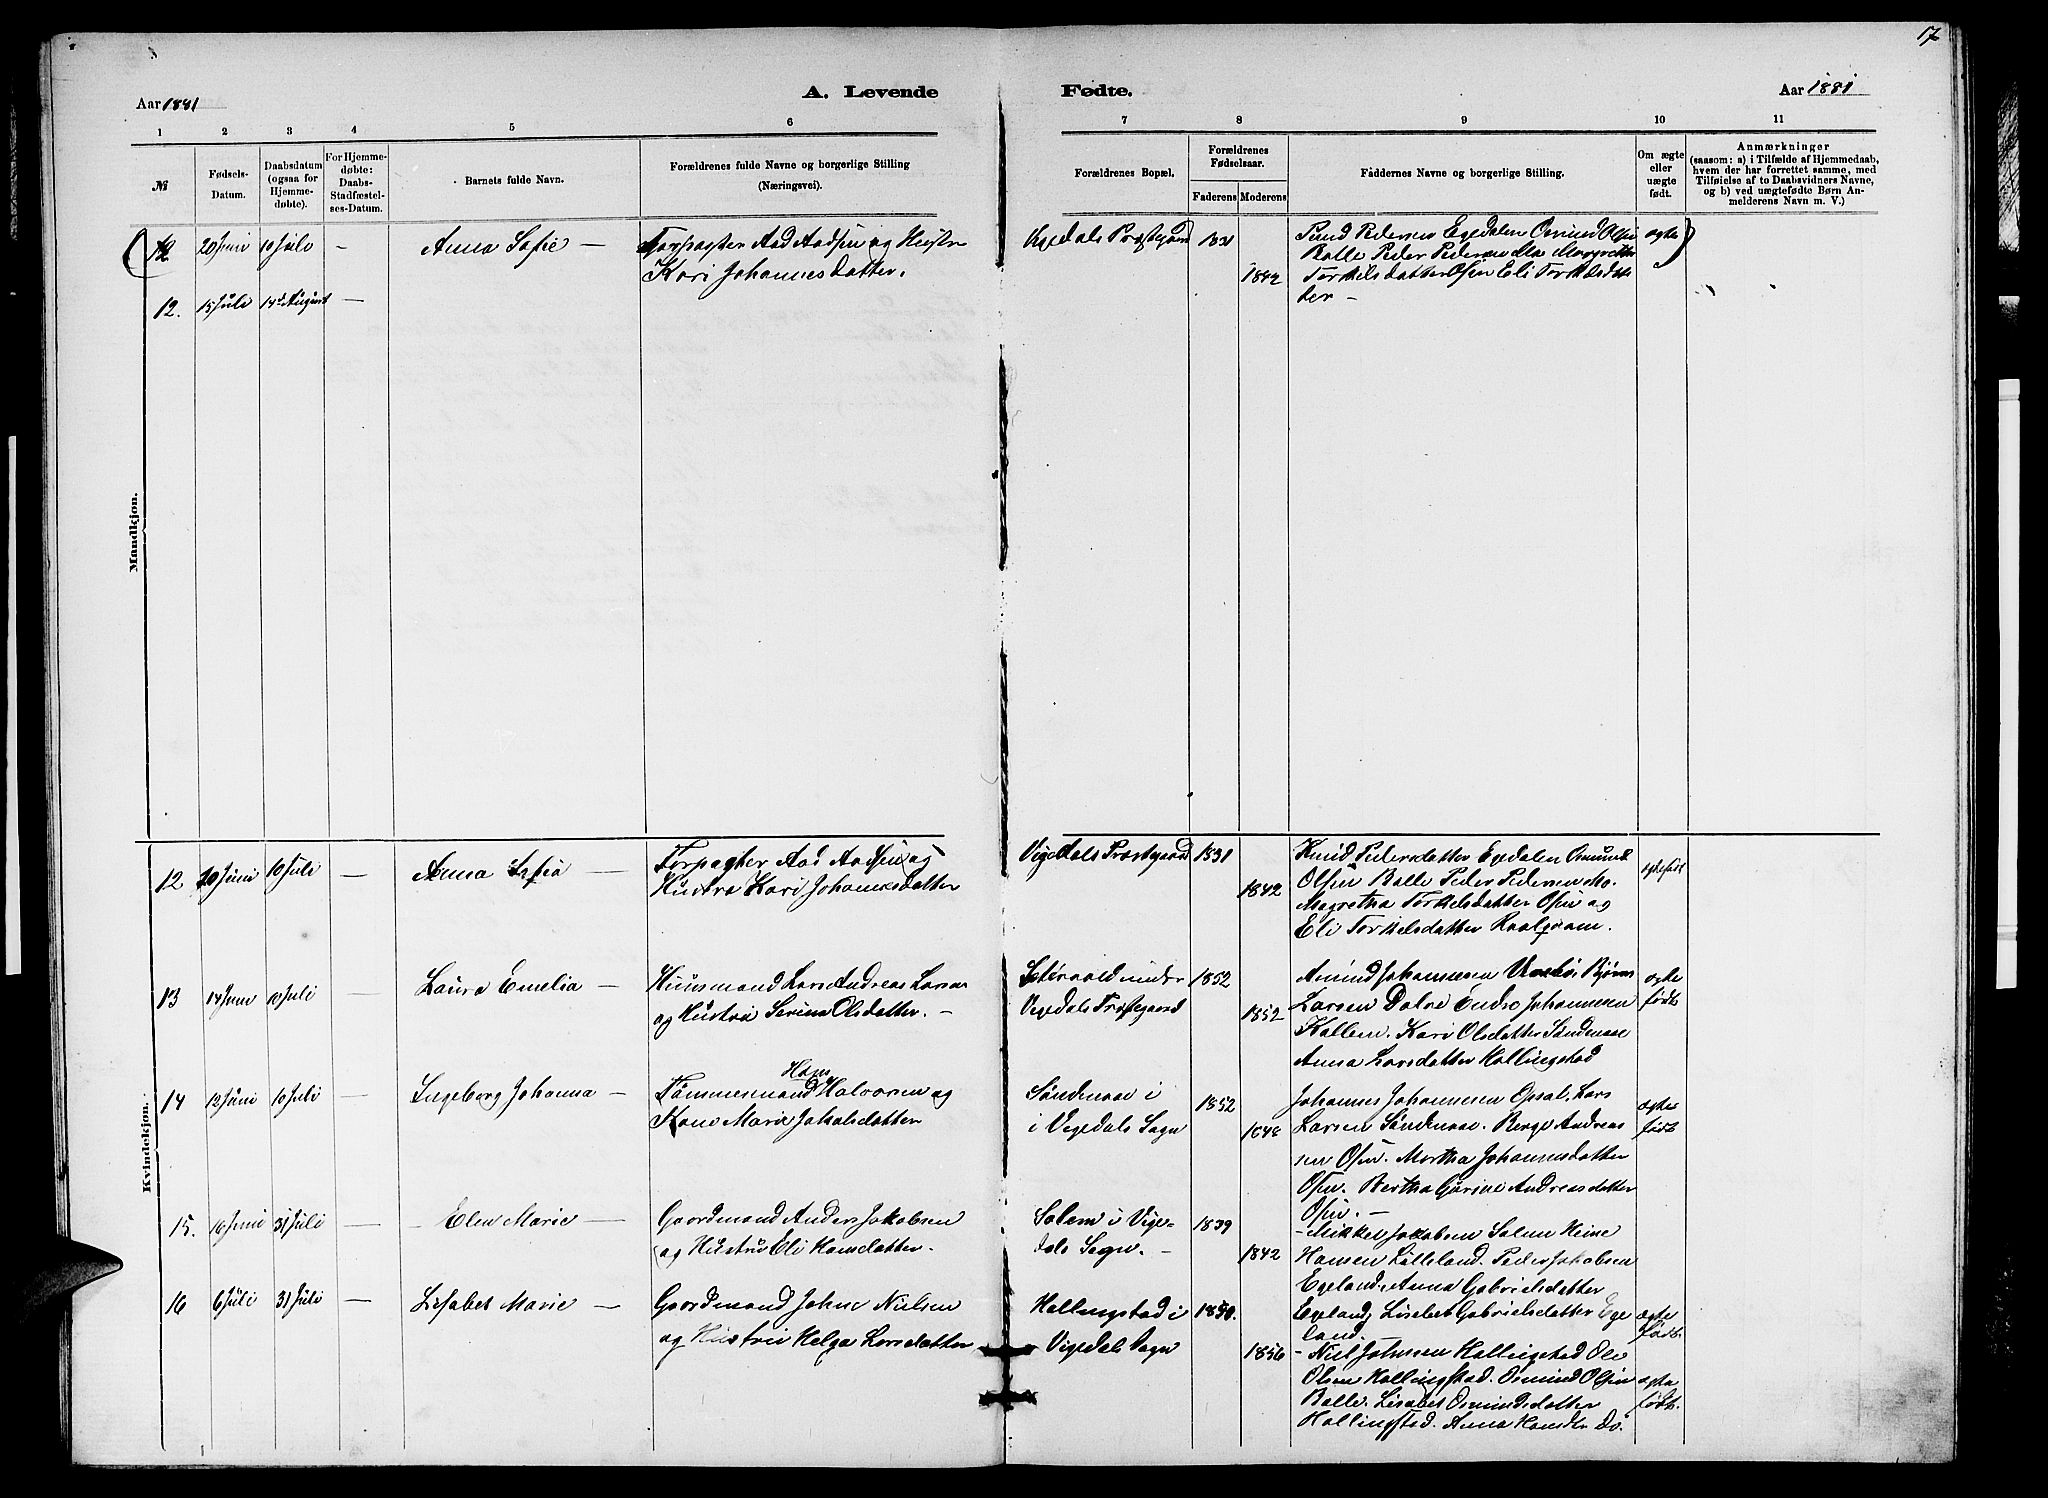 17
Aar 1881
A. Levende
Fødte.
Aar 1881
1 2 3 4 5 6 7 8 9 10 11
№
Fødsels-
Datum.
Daabsdatum
(ogsaa for
Hjemme-
døbte).
For Hjemme-
døbte:
Daabs-
Stadfæstel-
ses-Datum.
Barnets fulde Navn.
Forældrenes fulde Navne og borgerlige Stilling
(Næringsvei).
Forældrenes Bopæl.
Forældrenes
Fødselsaar.
Faderens Moderens
Fåddernes Navne og borgerlige Stilling.
Om ægte
eller
uægte
født.
Anmærkninger
(saasom: a) i Tilfælde af Hjemmedaab,
hvem der har forrettet samme, med
Tilføielse af to Daabsvidners Navne,
og b) ved uægtefødte Børn An-
melderens Navn m. V.)
Mandkjøn.
12 20 Juni 10 Juli — Anna Sofie —
Forpagter Aad Aadsen og Hustru
Kari Johannesdatter.
Vigedals Præstegaard
1831
1842
Pedersen Egedalen Osmund Olsen
Balle Peder Pedersen Mo Margrethe
Torkelsdatter Osen Eli Torkelsdat
ter —
ægte
12. 15 Juli 14de August —
Kvindekjøn.
12 20 Juni 10 Juli — Anna Sofia —
Forpagter Aad Aadsen og
Hustru Kari Johannesdatter
Vigedals Præstegaard
1831
1842
Knud Pedersdatter Egedalen Osmund
Olsen Balle Peder Pedersen Mo.
Magretha Torkelsdatter Osen og
Eli Torkelsdatter
ægtefødt
13 14 Juni 10 Juli — Laura Emelia —
Huusmand Lars Andreas Larsen
og Hustru Serina Olsdatter. —
under
Vigedals Præstegaard
1852
1852
Amund Johannesen Bjørn
Larsen Endre Johannesen
Kallem. Kari Olsdatter Søndenaa
Anna Larsdatter Hallingstad
ægte
født
14 12 Juni 10 Juli — Ingeborg Johanna —
Hans
Tømmermand Halvorsen og
Kone Marie Jakobsdatter
Søndenaa i
i Vigedals Sogn
1852
1848
Johannes Johannesen Opsal. Lars
Larsen Søndenaa. Berge Andreas
sen Osen. Martha Johannesdatter
Osen. Bertha Gurine Andreasdatter
Osen. —
ægte
født
15. 16 Juni 31 Juli — Elen Marie —
Gaardmand Anders Jakobsen
og Hustru Eli Hansdatter.
Salem i Vige-
dals Sogn. —
1839
1842
— Mikkel Jakobsen Salem Heine
Hansen Lilleland. Peder Jakobsen
Egeland, Anna Gabrielsdatter
Egeland, Lisebet Gabrielsdatter Ege
land.
ægte
født.
16 6 Juli 31 Juli — Lisabet Marie —
Gaardmand Johne Nielsen
og Hustru Helga Larsdatter
Hallingstad i
Vigedals Sogn
1850.
1856
— Niel Johnsen Hallingstad Ole
Olsen Hallingstad. Osmund Olsen
Balle. Lisabet Osmundsdatter
Hallingstad. Anna Hansdtr Do.
ægte
født.